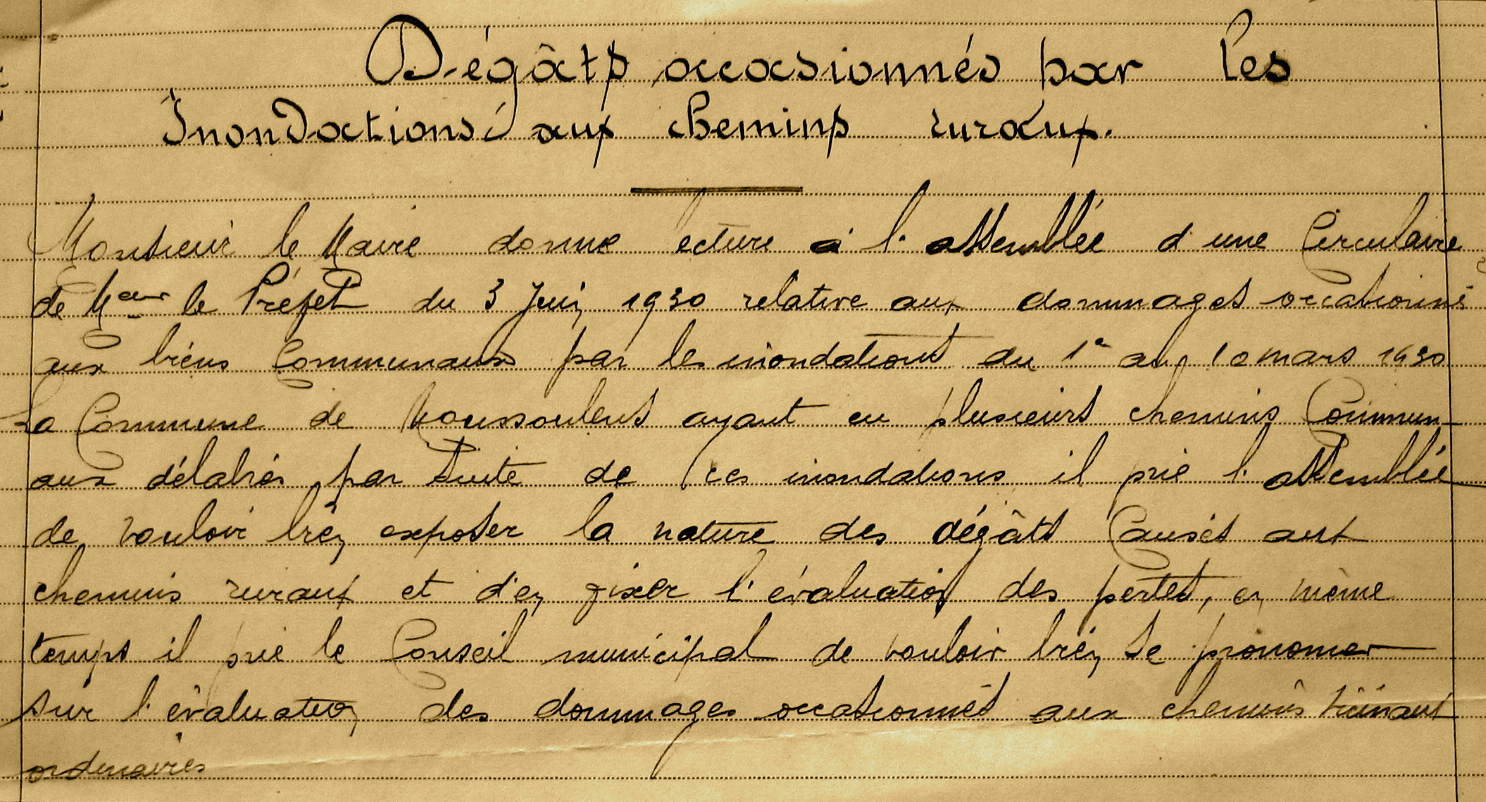 Dégâts occasionnés par les
Inondations aux chemins ruraux.
Monsieur le Maire donne lecture à l'assemblée d'une Circulaire
de Meur le Préfet du 3 Juin 1930 relative aux dommages occationnés
aux biens Communaux par les inondations du 1e au 10 mars 1930
La Commune de Moussoulens ayant eu plusieurs chemins Commun-
aux délabrés par suite de ces inondations il prie l'assemblée
de vouloir bien exposer la nature des dégâts Causés aux
chemins ruraux et d'en fixer l'évaluation des pertes, en même
temps il prie le Conseil municipal de vouloir bien se prononcer
sur l'évaluation des dommages occationnés aux chemins vicinaux
ordinaires